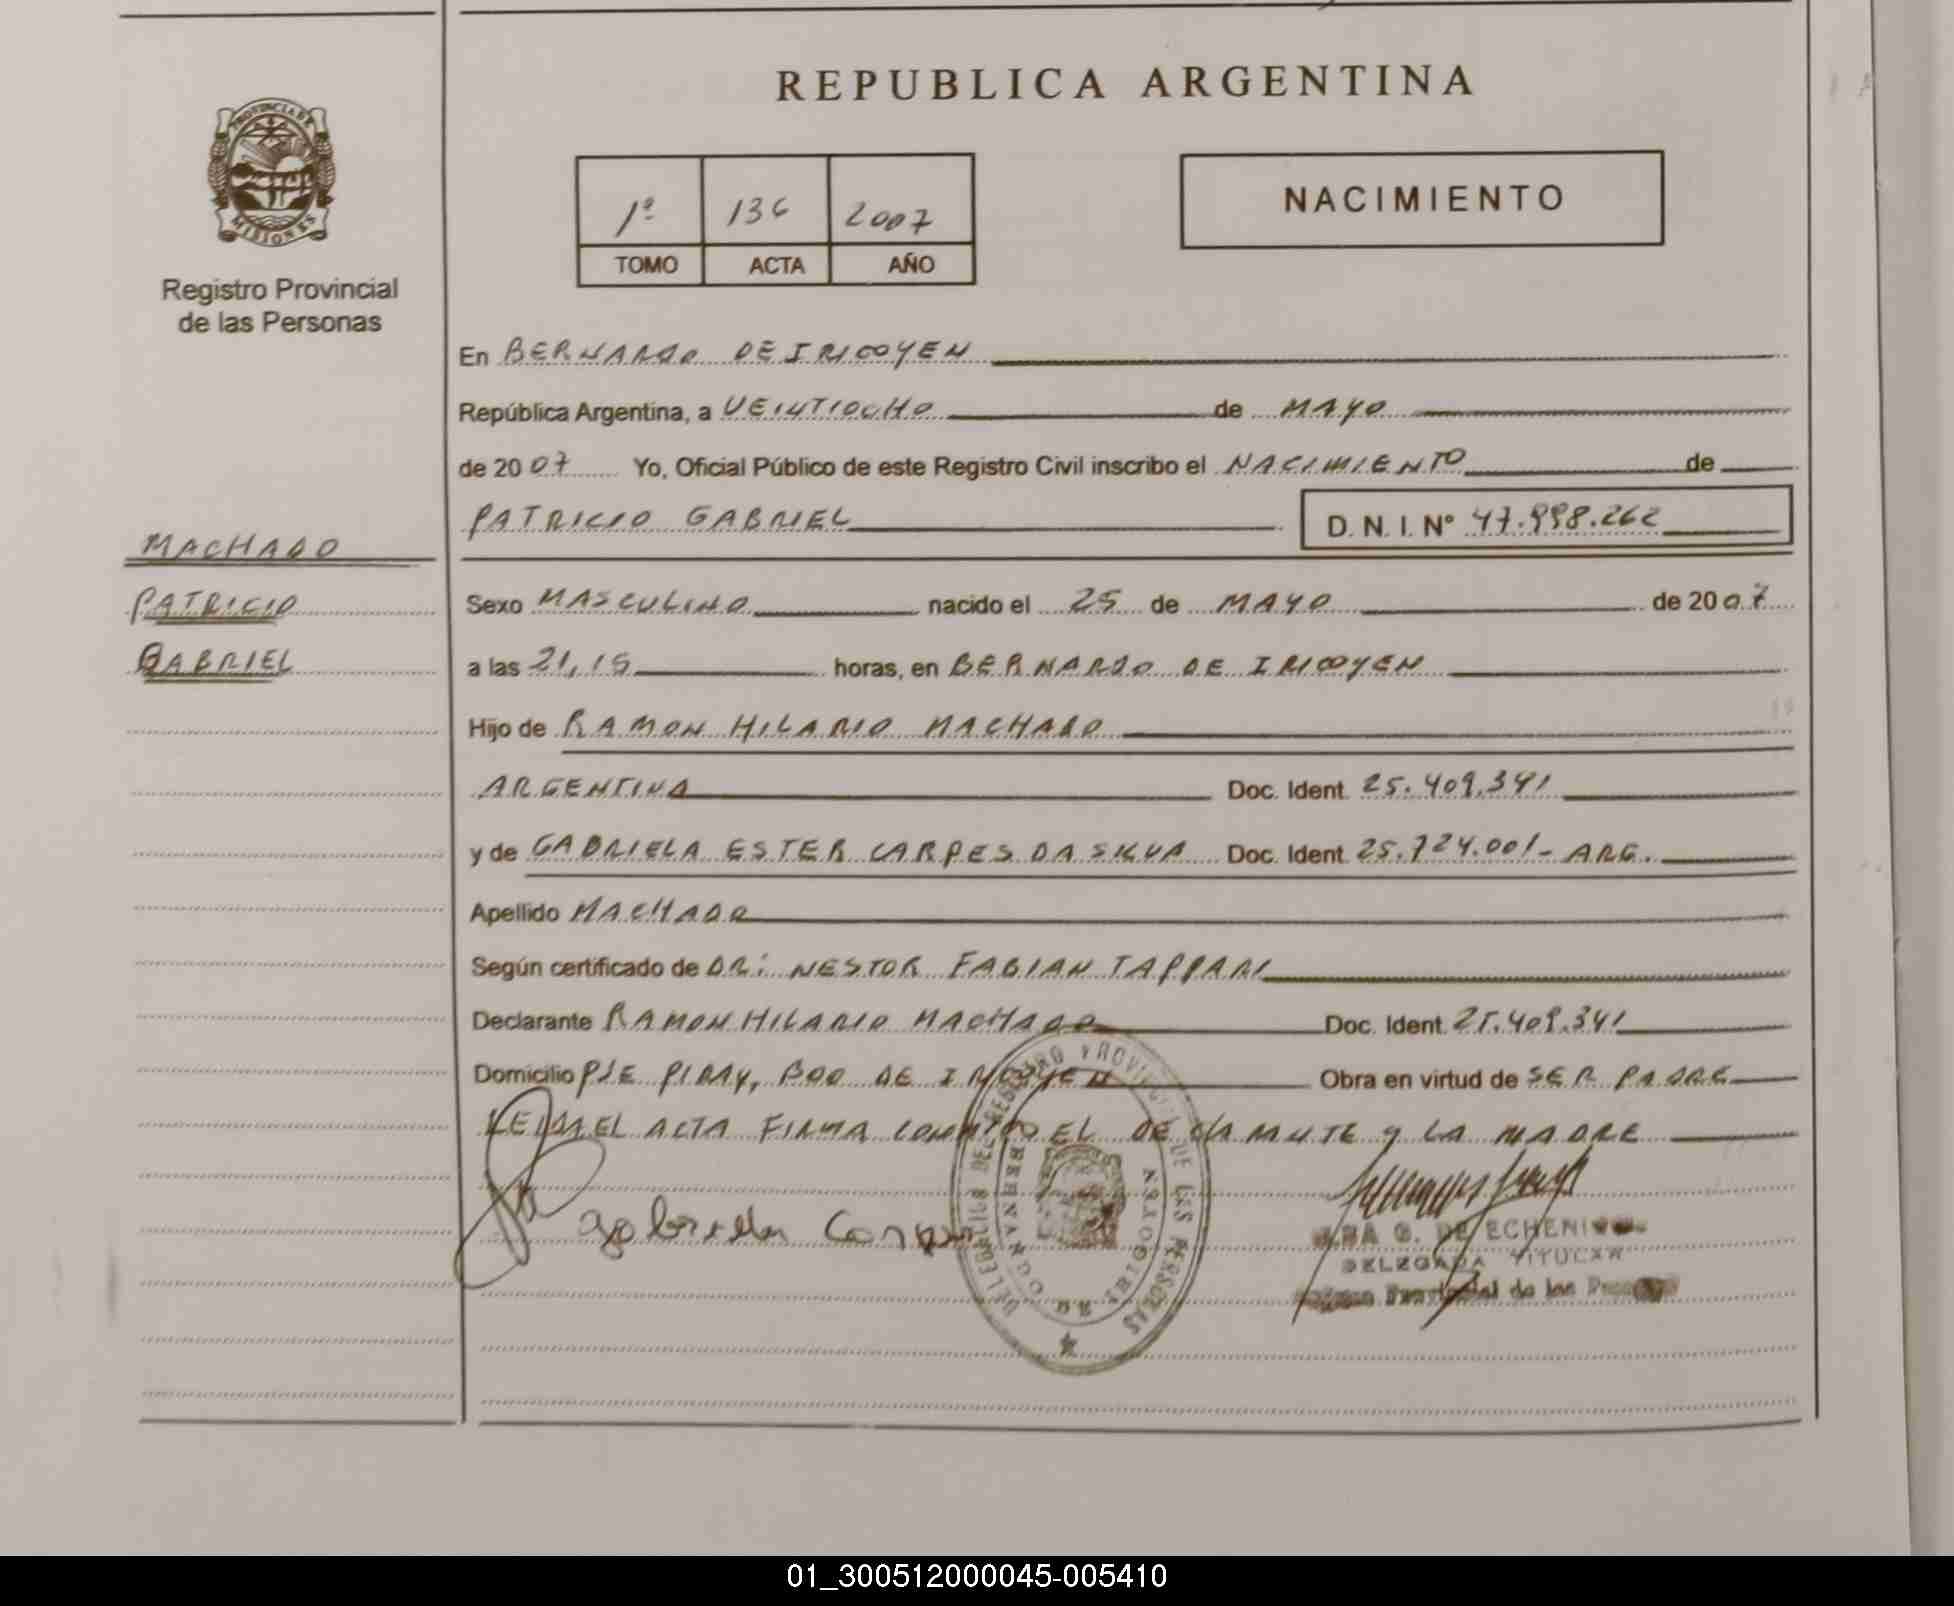 REPUBLICA ARGENTINA
PROVINCIA DE
MISIONES
Registro Provincial
de las Personas
1º 136 2007
TOMO ACTA AÑO
NACIMIENTO
En BERNARDO DE IRIGOYEN
República Argentina, a VEINTIOCHO de MAYO
de 2007 Yo, Oficial Público de este Registro Civil inscribo el NACIMIENTO de
PATRICIO GABRIEL D. N. I. Nº 47.998.262
MACHADO
PATRICIO
GABRIEL
Sexo MASCULINO nacido el 25 de MAYO de 2007
a las 21,15 horas, en BERNARDO DE IRIGOYEN
Hijo de RAMON HILARIO MACHADO
ARGENTINA Doc. Ident. 25.409.341
y de GABRIELA ESTER CARPES DA SILVA Doc. Ident. 25.724.001- ARG.
Apellido MACHADO
Según certificado de DR: NESTOR FABIAN TAPPARI
Declarante RAMON HILARIO MACHADO Doc. Ident. 25.409.341
Domicilio PJE PIRAY, BDO DE IRIGOYEN Obra en virtud de SER PADRE
LEIDA EL ACTA FIRMA CONMIGO EL DECLARANTE y LA MADRE
gabriela Carpes
DELEGACION DEL REGISTRO PROVINCIAL DE LAS PERSONAS
BERNARDO DE IRIGOYEN
G. DE ECHENI
DELEGADA TITULAR
Provincial de las
01_300512000045-005410